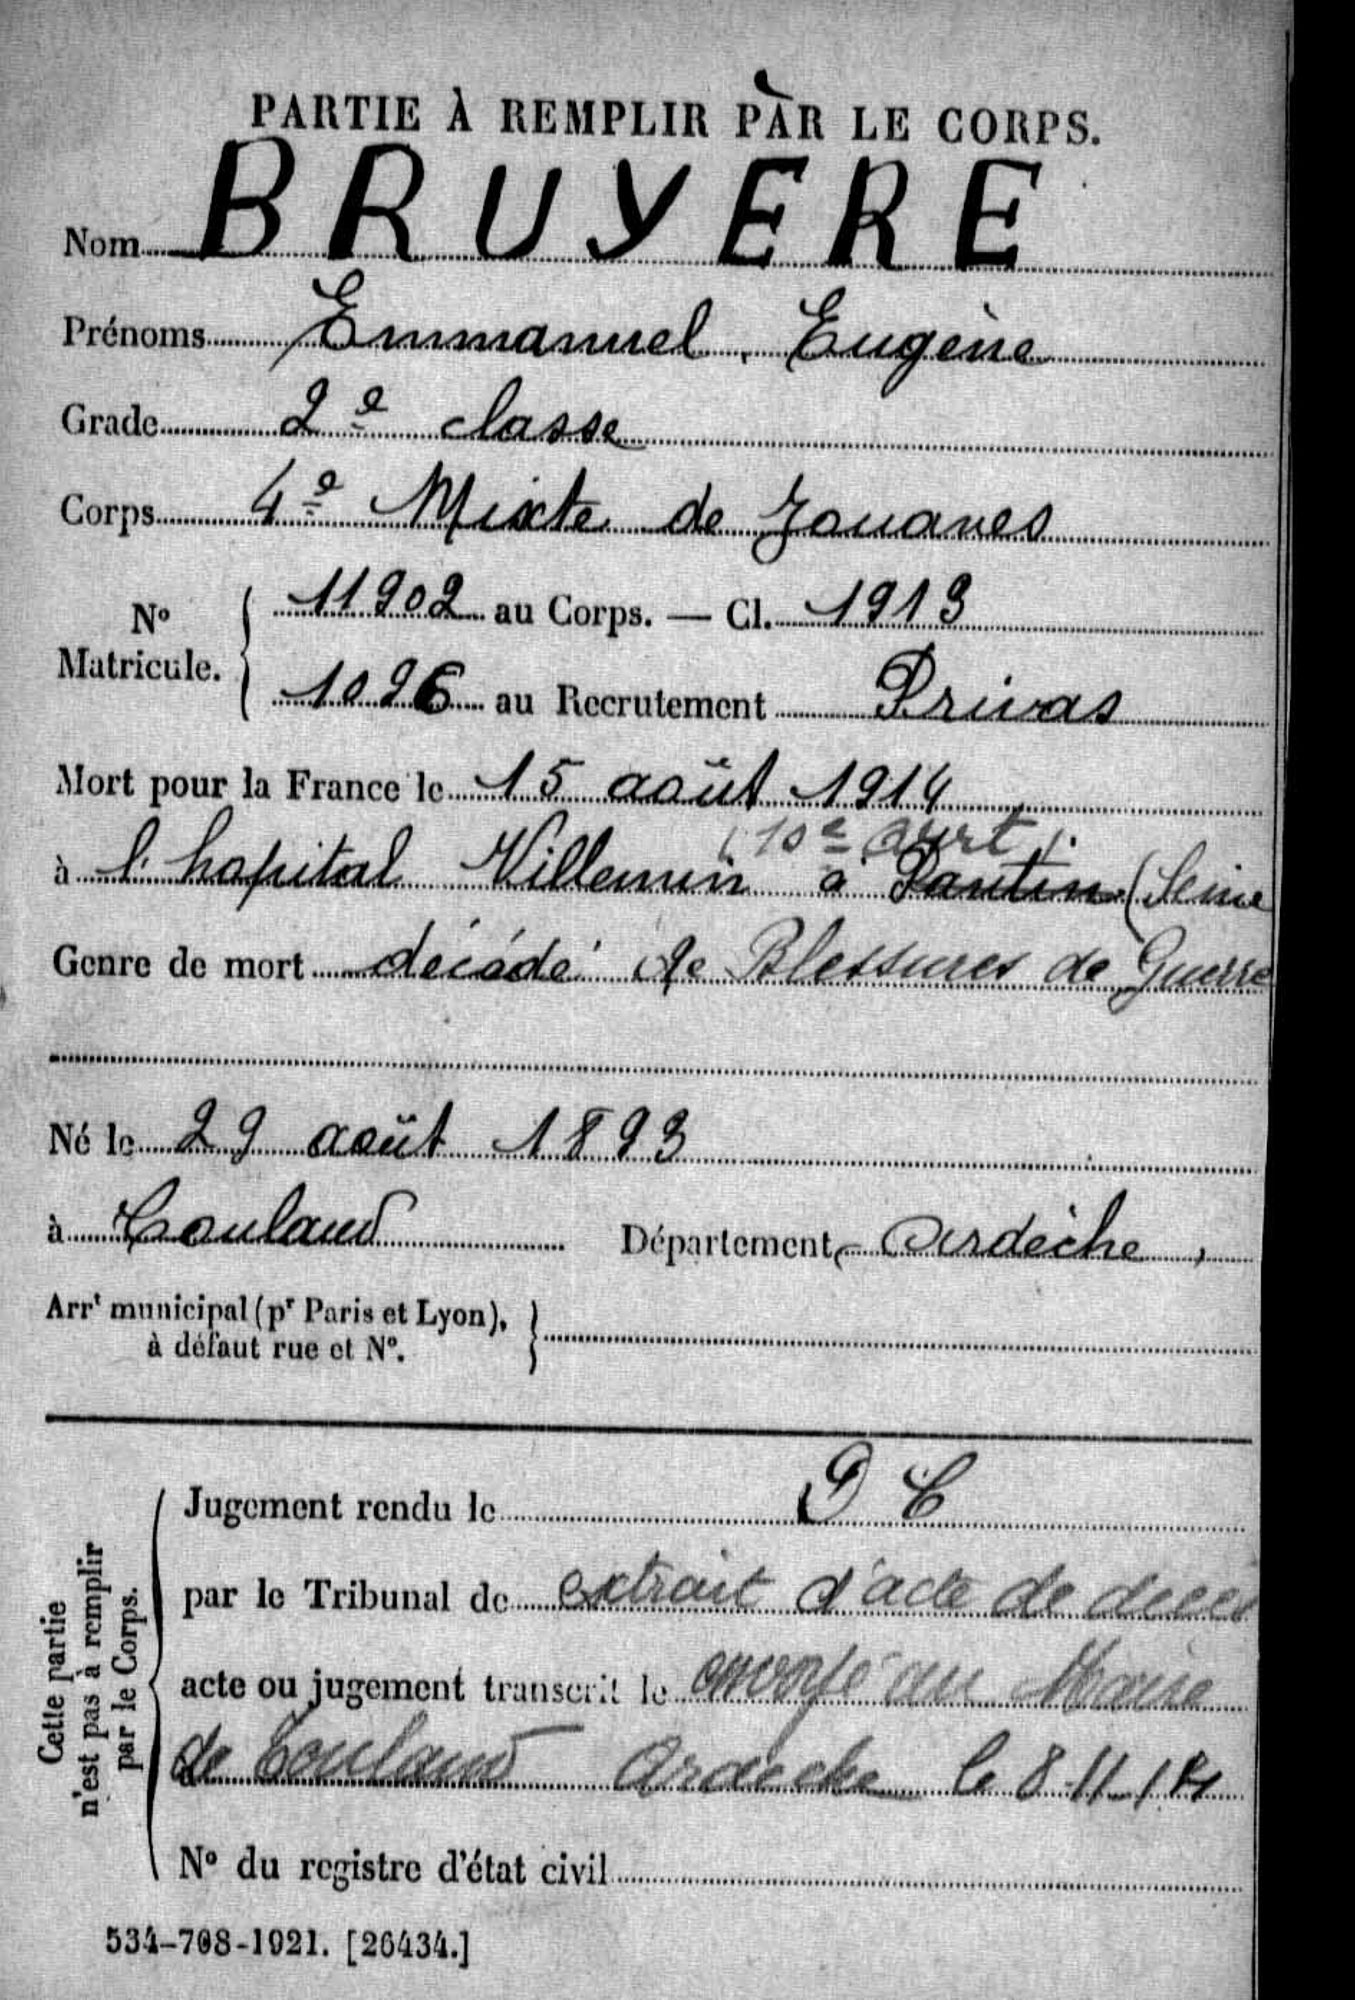 PARTIE À REMPLIR PAR LE CORPS.
Nom BRUYERE
Prénoms Emmanuel, Eugène
Grade 2e classe
Corps 4e Mixte de Zouaves
No Matricule. { 11902 au Corps. — Cl. 1913
1026 au Recrutement Privas
Mort pour la France le 15 août 1914
(10e arrt).
à l'hopital Villemin à Pantin (Seine
Genre de mort décédé de Blessures de Guerre
Né le 29 août 1893
à Toulaud Département Ardèche,
Arrt municipal (pr Paris et Lyon), à défaut rue et No. }
Cette partie n'est pas à remplir par le Corps.
Jugement rendu le D C
par le Tribunal de extrait d'acte de décès
acte ou jugement transcrit le envoyé au Maire
de Toulaud Ardèche le 8-11-14
No du registre d'état civil
534-708-1921. [26434.]